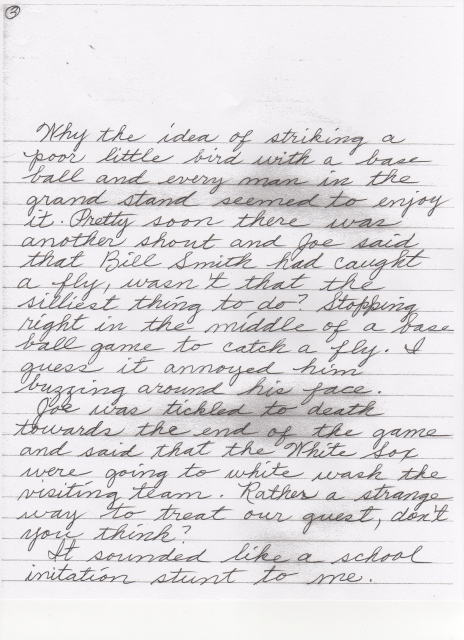 3
Why the idea of striking a
poor little bird with a base
ball and every man in the
grand stand seemed to enjoy
it. Pretty soon there was
another shout and Joe said
that Bill Smith had caught
a fly, wasn't that the
silliest thing to do? Stopping
right in the middle of a base
ball game to catch a fly. I
guess it annoyed him
buzzing around his face.
Joe was tickled to death
towards the end of the game
and said that the White Sox
were going to white wash the
visiting team. Rather a strange
way to treat our guest, don't
you think?
It sounded like a school
initation stunt to me.